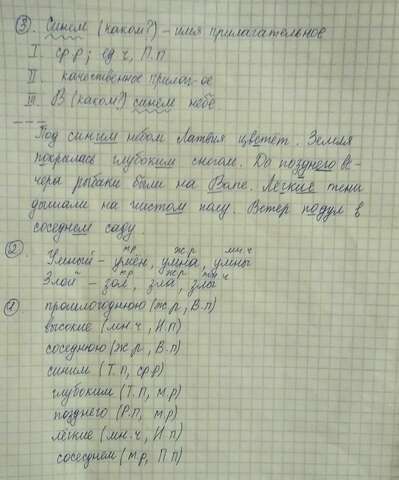 ③. Синем (каком?) - имя прилагательное
I. ср.р; ед.ч, П.п
II. качественное прилаг-ое
III. В (каком?) синем небе
Под синим небом Латвия цветёт. Земля
покрылась глубоким снегом. До позднего ве-
чера рыбаки были на
Лёгкие тени
на чистом полу. Ветер подул в
соседнем саду.
②. Умный - умён, умна, умны
м.р ж.р мн.ч
Злой - зол, зла, злы
м.р ж.р мн.ч
① прошлогоднюю (ж.р, В.п)
высокие (мн.ч, И.п)
соседнюю (ж.р, В.п)
синим (Т.п, ср.р)
глубоким (Т.п, м.р)
позднего (Р.п, м.р)
лёгкие (мн.ч, И.п)
соседнем (м.р, П.п)